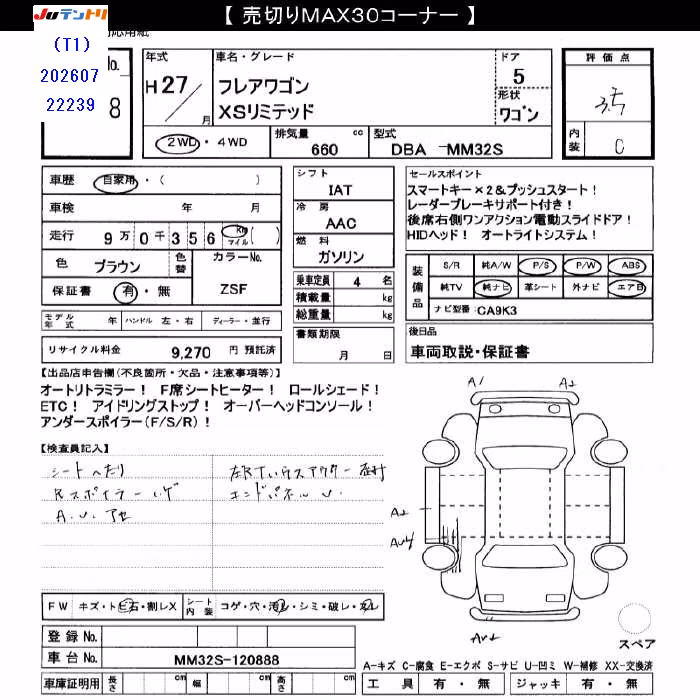 【 売切りMAX30コーナー 】
JUテントリ
(T1)
202607
22239
No.
8
年式
H 27 / 月
車名・グレード
フレアワゴン
XSリミテッド
ドア
5
形状
ワゴン
評価点
3.5
内装
C
2WD・4WD
排気量 660 cc
型式 DBA -MM32S
車歴 自家用・( )
車検 年 月
走行 9万0千356 km マイル ( )
色 ブラウン
色替
カラーNo. ZSF
保証書 有・無
モデル年式 年 ハンドル 左・右 ディーラー・並行
リサイクル料金 9,270 円 預託済
シフト
IAT
冷房
AAC
燃料
ガソリン
乗車定員 4 名
積載量 kg
総重量 kg
書類期限
月 日
セールスポイント
スマートキー×2&プッシュスタート!
レーダーブレーキサポート付き!
後席右側ワンアクション電動スライドドア!
HIDヘッド! オートライトシステム!
装備品
S/R 純A/W P/S P/W ABS
純TV 純ナビ 革シート 外ナビ エアB
ナビ型番 CA9K3
後日品
車両取説・保証書
【出品店申告欄(不良箇所・欠品・注意事項等)】
オートリトラミラー! F席シートヒーター! ロールシェード!
ETC! アイドリングストップ! オーバーヘッドコンソール!
アンダースポイラー(F/S/R)!
【検査員記入】
シートヘタリ
Rスポイラーハゲ
A.U.アセ
エンドパネルU.
A1
A2
A2
FW キズ・トビ石・割レX
シート内装 コゲ・穴・汚レ・シミ・破レ・スレ
登録No.
車台No. MM32S-120888
車庫証明用 長さ cm 幅 cm 高さ cm
スペア
A-キズ C-腐食 E-エクボ S-サビ U-凹ミ W-補修 XX-交換済
工具 有・無 ジャッキ 有・無